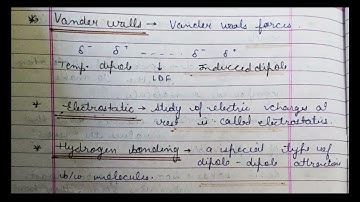 * Vander walls → Vander waals forces.
δ⁻ δ⁺ ----- δ⁻ δ⁺
Temp. dipole ↓ induced dipole
LDF
* Electrostatic → study of electric charges at
rest is called electrostatics.
* Hydrogen bonding → a special type of
dipole-dipole attraction
b/w molecules.